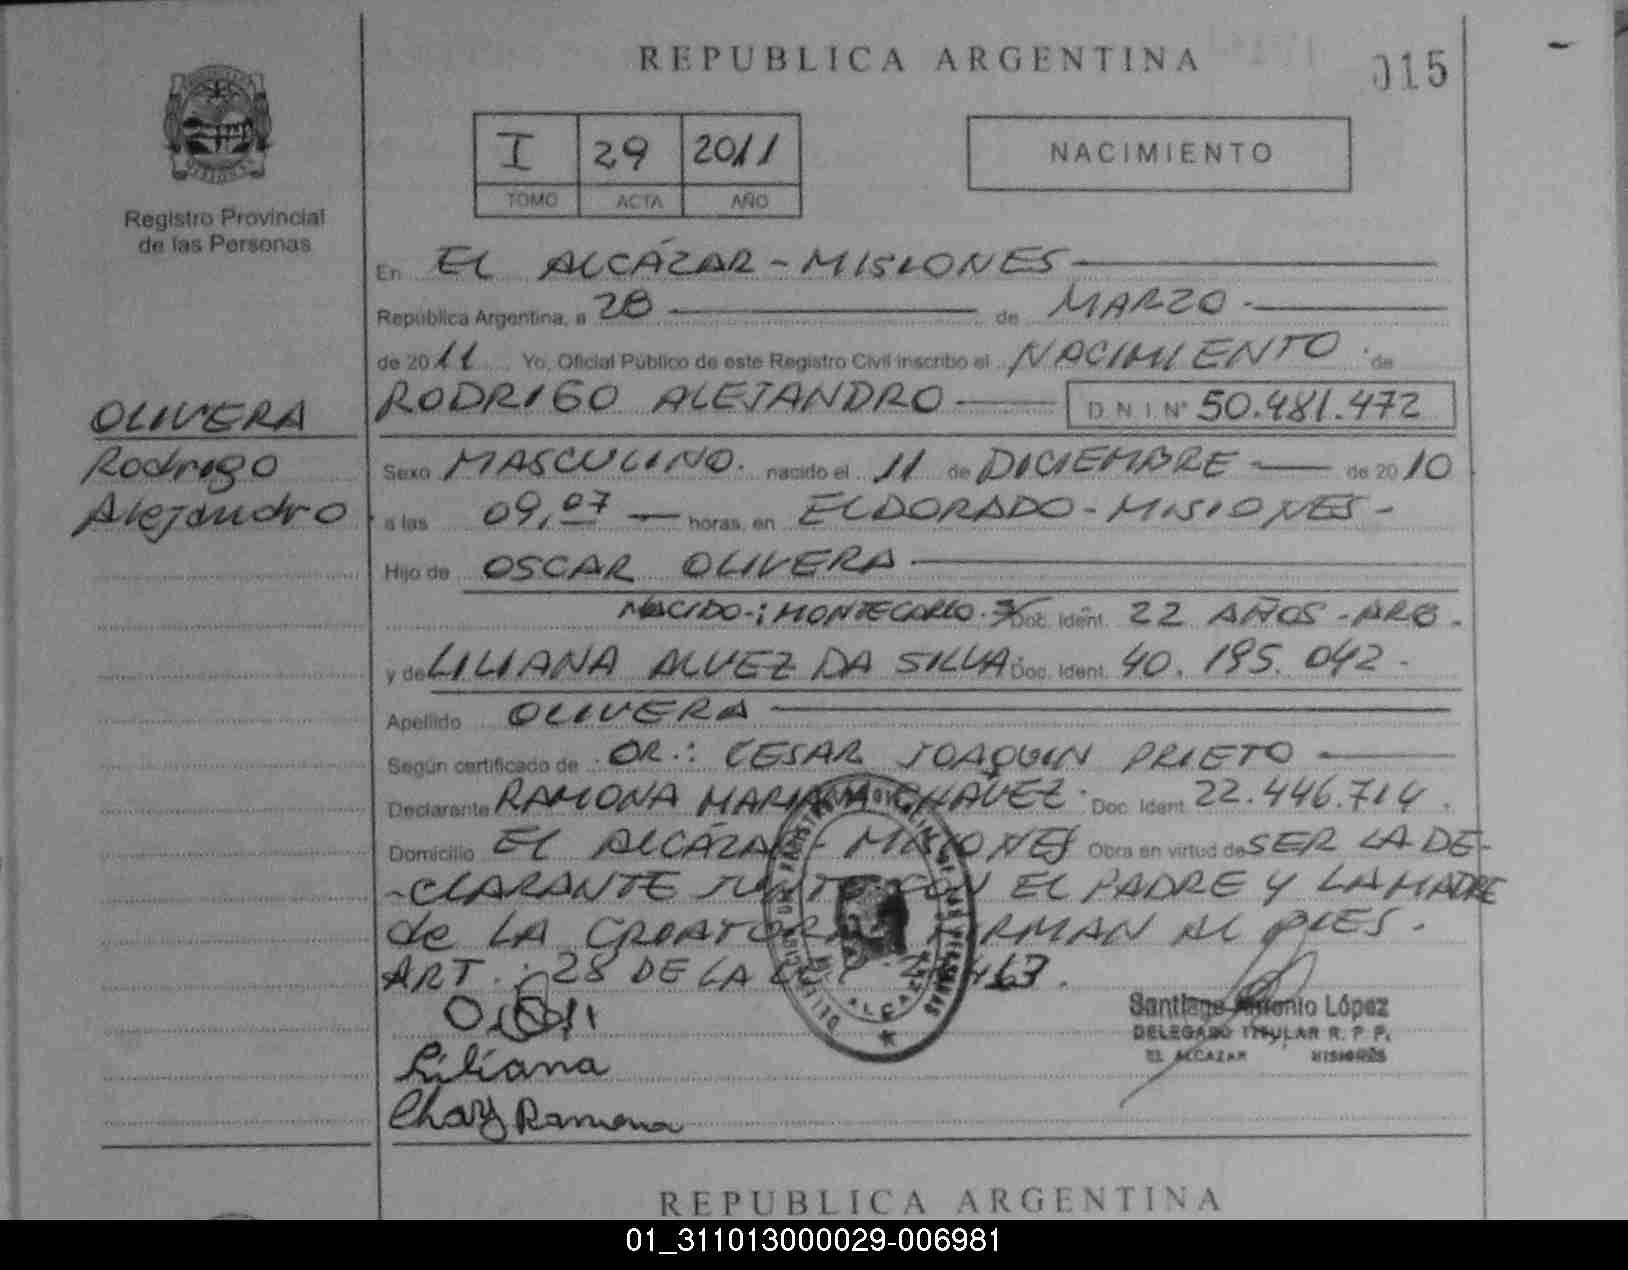 REPUBLICA ARGENTINA
015
Registro Provincial
de las Personas
I 29 2011
TOMO ACTA AÑO
NACIMIENTO
En EL ALCÁZAR - MISIONES
República Argentina, a 28 de MARZO
de 2011 Yo, Oficial Público de este Registro Civil inscribo el NACIMIENTO de
RODRIGO ALEJANDRO D.N.I. Nº 50.481.472
OLIVERA
Rodrigo
Alejandro
Sexo MASCULINO. nacido el 11 de DICIEMBRE de 2010
a las 09,07 horas, en ELDORADO - MISIONES -
Hijo de OSCAR OLIVERA
NACIDO-: MONTECARLO. Doc. Ident. 22 AÑOS - ARG.
y de LILIANA ALVEZ DA SILVA. Doc. Ident. 40.195.042.
Apellido OLIVERA
Según certificado de DR.: CESAR JOAQUIN PRIETO
Declarante RAMONA MARIA CHAVEZ. Doc. Ident. 22.446.714.
Domicilio EL ALCÁZAR - MISIONES Obra en virtud de SER LA DE-
-CLARANTE JUNTO CON EL PADRE Y LA MADRE
de LA CRIATURA FIRMAN AL PIES.
ART.: 28 DE LA LEY
Liliana
Chavz Ramona
Santiago Antonio López
DELEGADO TITULAR R. P. P.
EL ALCAZAR MISIONES
REPUBLICA ARGENTINA
01_311013000029-006981